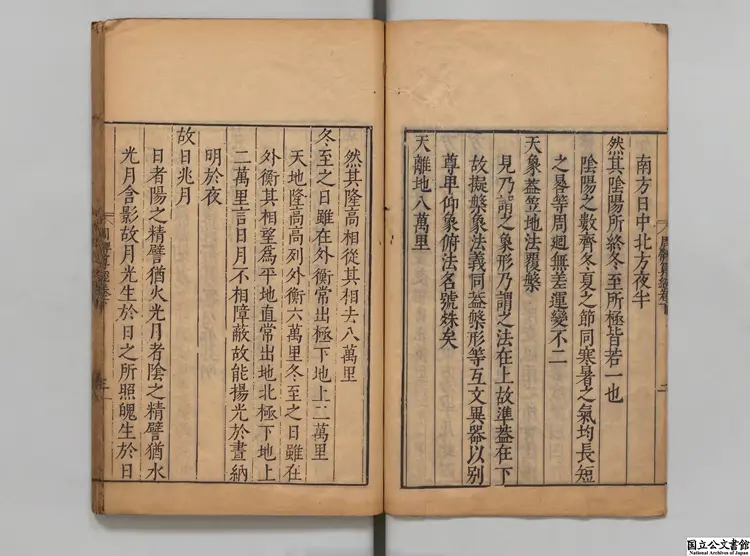 南方日中北方夜半
然其陰陽所終冬至所極皆若一也
陰陽之數齊冬夏之節同寒暑之氣均長短
之晷等周迴無差運變不二
天象蓋笠地法覆槃
見乃謂之象形乃謂之法在上故準蓋在下
故擬槃象法義同蓋槃形等互文異器以別
尊卑仰象俯法名號殊矣
天離地八萬里
然其隆高相從其相去八萬里
冬至之日雖在外衡常出極下地上二萬里
天地隆高高列外衡六萬里冬至之日雖在
外衡其相望爲平地直常出地北極下地上
二萬里言日月不相障蔽故能揚光於晝納
明於夜
故日兆月
日者陽之精譬猶火光月者陰之精譬猶水
光月含影故月光生於日之所照魄生於日
国立公文書館
National Archives of Japan